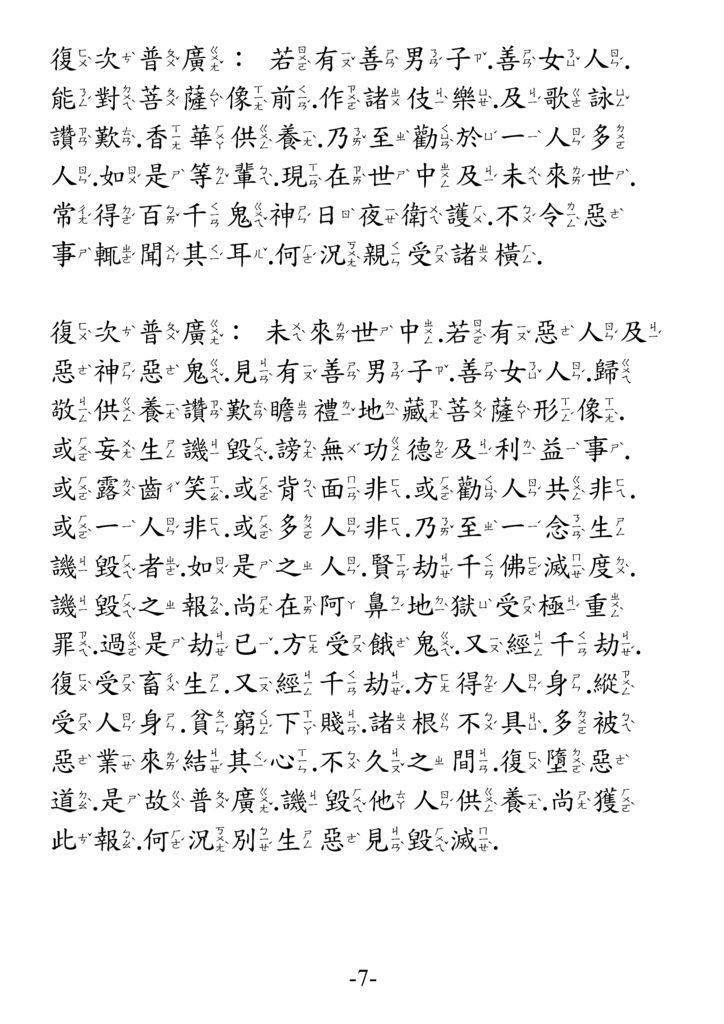 復次普廣： 若有善男子.善女人.
能對菩薩像前.作諸伎樂.及歌詠
讚歎.香華供養.乃至勸於一人多
人.如是等輩.現在世中及未來世.
常得百千鬼神日夜衛護.不令惡
事輒聞其耳.何況親受諸橫.
復次普廣： 未來世中.若有惡人及
惡神惡鬼.見有善男子.善女人.歸
敬供養讚歎瞻禮地藏菩薩形像.
或妄生譏毀.謗無功德及利益事.
或露齒笑.或背面非.或勸人共非.
或一人非.或多人非.乃至一念生
譏毀者.如是之人.賢劫千佛滅度.
譏毀之報.尚在阿鼻地獄受極重
罪.過是劫已.方受餓鬼.又經千劫.
復受畜生.又經千劫.方得人身.縱
受人身.貧窮下賤.諸根不具.多被
惡業來結其心.不久之間.復墮惡
道.是故普廣.譏毀他人供養.尚獲
此報.何況別生惡見毀滅.
-7-